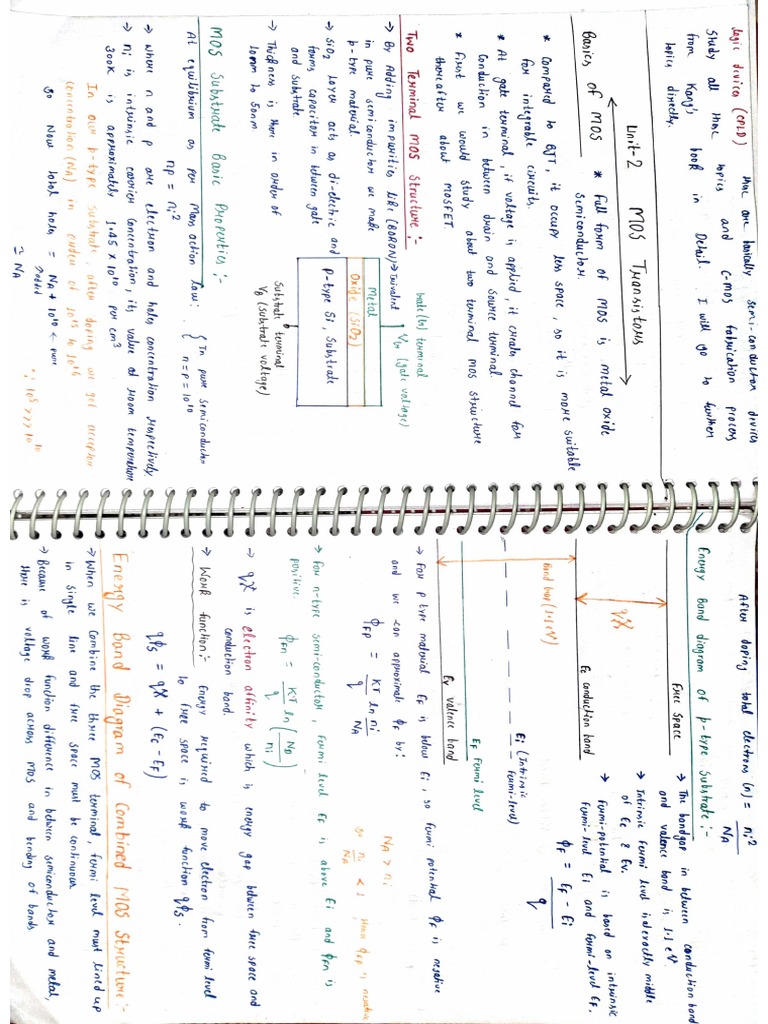 logic device (CPLD) that are basically semi-conductor devices
Study all these topics and C-MOS fabrication process
from Kang's book in Detail. I will go to further
topics directly.
Unit-2 MOS Transistors
Basics of MOS * Full form of MOS is metal oxide
semiconductors.
* Compared to BJT, it occupy less space, so it is more suitable
for integrable circuits.
* At gate terminal, if voltage is applied, it creates channel for
Conduction in between drain and source terminal.
* First we would study about two terminal mos structure
thereafter about MOSFET.
Two Terminal MOS Structure:-
→ By Adding impurities like (BORON)→ Trivalent
in pure semiconductor we make
p-type material.
→ SiO2 layer acts as di-electric and
forms capacitor in between gate
and substrate
→ Thickness is there in order of
10nm to 50nm
Gate(G) terminal
VG (gate voltage)
Metal
Oxide (SiO2)
P-type Si, Substrate
Substrate terminal
VB (Substrate voltage)
MOS Substrate Basic Properties:-
At equilibrium as per Mass action law:
np = ni²
{ In pure semiconductor
n=p=10^10
→ where n and p are electron and holes concentration respectively
→ ni is intrinsic carrier concentration, its value at room temperature
300K is approximately 1.45 × 10^10 per cm³
In our p-type substrate, after doping we get acceptor
concentration (NA) in order of 10^15 to 10^16
So Now total holes = NA + 10^10 ← pure
↗ added
≈ NA
∵ 10^15 >>> 10^10
After doping total electrons (n) = ni²/NA
Energy Band diagram of p-type Substrate:-
Free Space
qX
Ec conduction band
Band Gap (1.1 eV)
Ei (Intrinsic
fermi-level)
EF Fermi level
Ev valence band
→ The bandgap in between conduction band
and valence band is 1.1 eV.
→ Intrinsic Fermi level is exactly middle
of Ec & Ev.
→ Fermi-potential is based on intrinsic
Fermi-level Ei and Fermi-level EF.
ϕF = EF - Ei / q
→ For p type material EF is below Ei, so fermi potential ϕF is negative
and we can approximate ϕF by:
ϕFp = KT/q ln ni/NA
NA > ni
so ni/NA < 1, then ϕFp is negative
→ For n-type semi-conductor, Fermi level EF is above Ei and ϕFn is
positive.
ϕFn = KT/q ln (ND/ni)
→ qX is electron affinity which is energy gap between free space and
conduction band.
→ Work function:- Energy required to move electron from fermi level
to free space is work function qϕs.
qϕs = qX + (Ec - EF)
Energy Band Diagram of Combined MOS Structure:-
→ When we combine the three MOS terminal, fermi level must lined up
in single line and free space must be continuous
→ Because of work function difference in between semiconductor and metal,
there is voltage drop across MOS and bending of bands